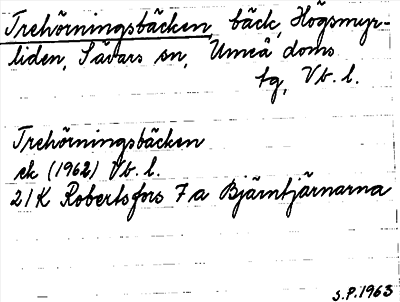 Trehörningsbäcken, bäck, Högsmyr-
liden, Sävars sn, Umeå doms
tg, Vb. l.
Trehörningsbäcken
ek (1962) Vb. l.
21K Robertsfors 7a Bjärntjärnarna
S.P. 1963